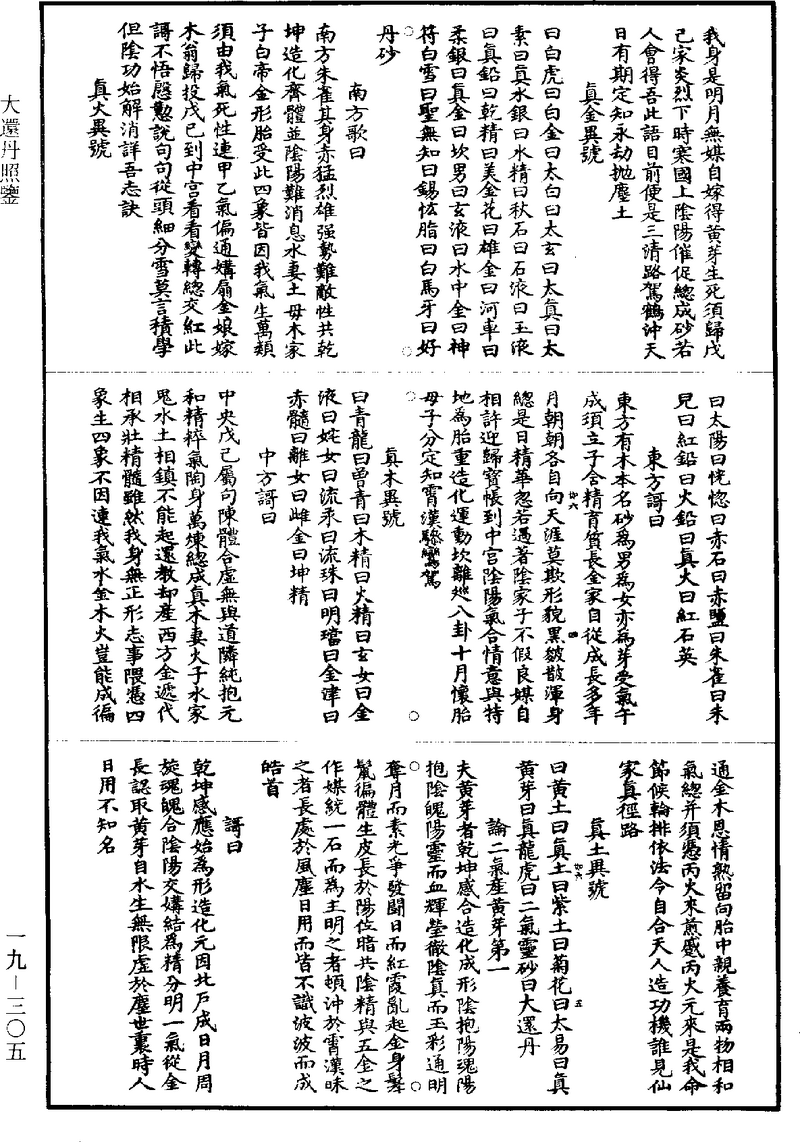 我身是明月無媒自嫁得黃芽生死須歸戊
己家炎烈下時寒國上陰陽催促總成砂若
人會得吾此語目前便是三清路駕鶴沖天
日有期定知永劫拋塵土
眞金異號
曰白虎曰白金曰太白曰太玄曰太眞曰太
素曰眞水銀曰水精曰秋石曰石液曰玉液
曰眞鉛曰乾精曰美金花曰雄金曰河車曰
柔銀曰眞金曰坎男曰玄液曰水中金曰神
符白雪曰聖無知曰錫恡脂曰白馬牙曰好
丹砂
南方歌曰
南方朱雀其身赤猛烈雄强勢難敵性共乾
坤造化齊體並陰陽難消息水妻土毋木家
子白帝金形胎受此四象皆因我氣生萬類
須由我氣死性連甲乙氣偏通媾扇金娘嫁
木翁歸投戊己到中宮看看變轉總交紅此
謌不悟慇懃說句句從頭細分雪莫言積學
但陰功始解消詳吾志訣
眞火異號
曰太陽曰恍惚曰赤石曰赤鹽曰朱雀曰朱
兒曰紅鉛曰火鉛曰眞火曰紅石英
東方謌曰
東方有木本名砂爲男爲女亦爲芽受氣午
成須立子含精育質長金家自從成長多年
月朝朝各自向天涯莫欺形貌黑皴散渾身
總是日精華忽若遇著陰家子不假良媒自
相許迎歸寶帳到中宮陰陽氣合情意與特
地爲胎重造化運動坎離巡八卦十月懷胎
母子分定知霄漢驂鸞駕
眞木異號
曰青龍曰曾青曰木精曰火精曰玄女曰金
液曰姹女曰流汞曰流珠曰明璫曰金津曰
赤髓曰離女曰雌金曰坤精
中方謌曰
中央戊己屬句陳體合虛無與道隣純抱元
和精粹氣陶身萬煉總成眞木妻火子水家
鬼水土相鎮不能起運教却產西方金遞代
相承壯精髓雖然我身無正形志事隈憑四
象生四象不因連我氣水金木火豈能成徧
通金木恩情熟留向胎中親養育兩物相和
氣總并須憑丙火來煎感丙火元來是我命
節候輪排依法令自合天人造功機誰見仙
家眞徑路
眞土異號
曰黃土曰眞土曰紫土曰菊花曰太易曰眞
黃芽曰眞龍虎曰二氣靈砂曰大還丹
論二氣產黃芽第一
夫黃芽者乾坤感合造化成形陰抱陽魂陽
抱陰魄陽靈而血輝瑩徹陰眞而玉彩通明
奪月而素光爭發闘日而紅霞亂起金身鬅
鬣徧體生皮長於陽位暗共陰精與五金之
作媒統一石而爲主明之者頓沖於霄漢昧
之者長處於風塵日用而皆不識波波而成
皓首
謌曰
乾坤感應始爲形造化元因北戶成日月周
旋魂魄合陰陽交媾結爲精分明一氣從金
長認取黃芽自水生無限虛於塵世裏時人
日用不知名
大還丹照鑒
一九—三〇五